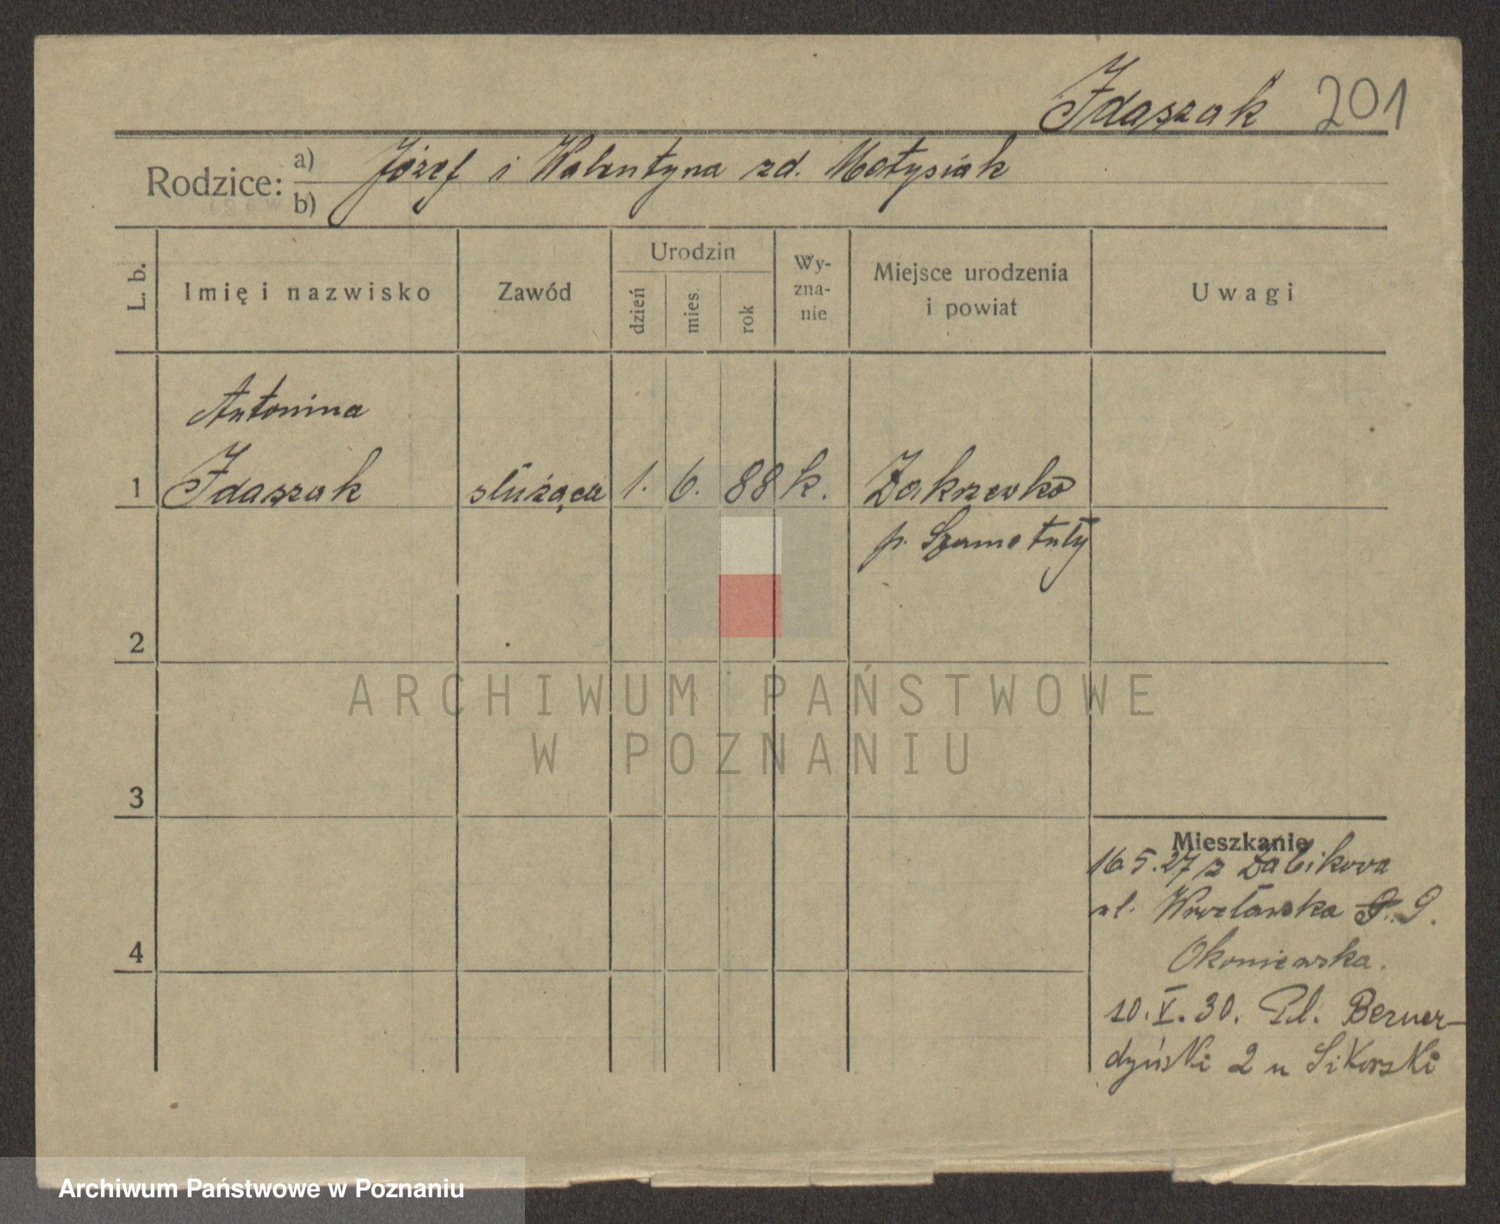 Idaszak 201
Rodzice: a) Józef i Walentyna zd. Matysiak
b)
L. b. Imię i nazwisko Zawód Urodzin dzień mies. rok Wy-zna-nie Miejsce urodzenia i powiat Uwagi
Antonina
1 Idaszak służąca 1. 6. 88 k. Zakrzewko
p. Szamotuły
2
ARCHIWUM PAŃSTWOWE
W POZNANIU
3
Mieszkanie
16.5.27 z Żabikova
ul. Wrocławska 9.
4
Okoniewska.
10.V.30. Pl. Bernar-
dyński 2 u Sikorski
Archiwum Państwowe w Poznaniu